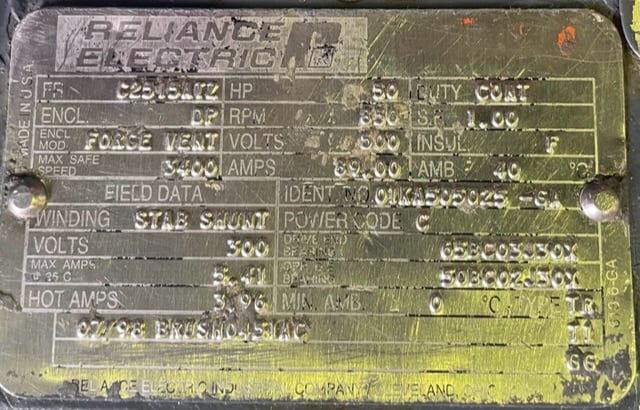 RELIANCE
ELECTRIC R
MADE IN U.S.A.
FR. C2515ATZ HP 50 DUTY CONT
ENCL. DP RPM 850 S.F. 1.00
ENCL MOD. FORCE VENT VOLTS 500 INSUL. F
MAX SAFE SPEED 3400 AMPS 89.00 AMB 40 °C
FIELD DATA IDENT. NO. 01KA505025 -GA
WINDING STAB SHUNT POWER CODE C
VOLTS 300 DRIVE END BEARING 65BC03J30X
MAX AMPS @ 25 C 5.41 OPP. D.E. BEARING 50BC02J30X
HOT AMPS 3.96 MIN. AMB. 0 °C TYPE TR
07/98 TI
GG
RELIANCE ELECTRIC INDUSTRIAL COMPANY CLEVELAND, OHIO